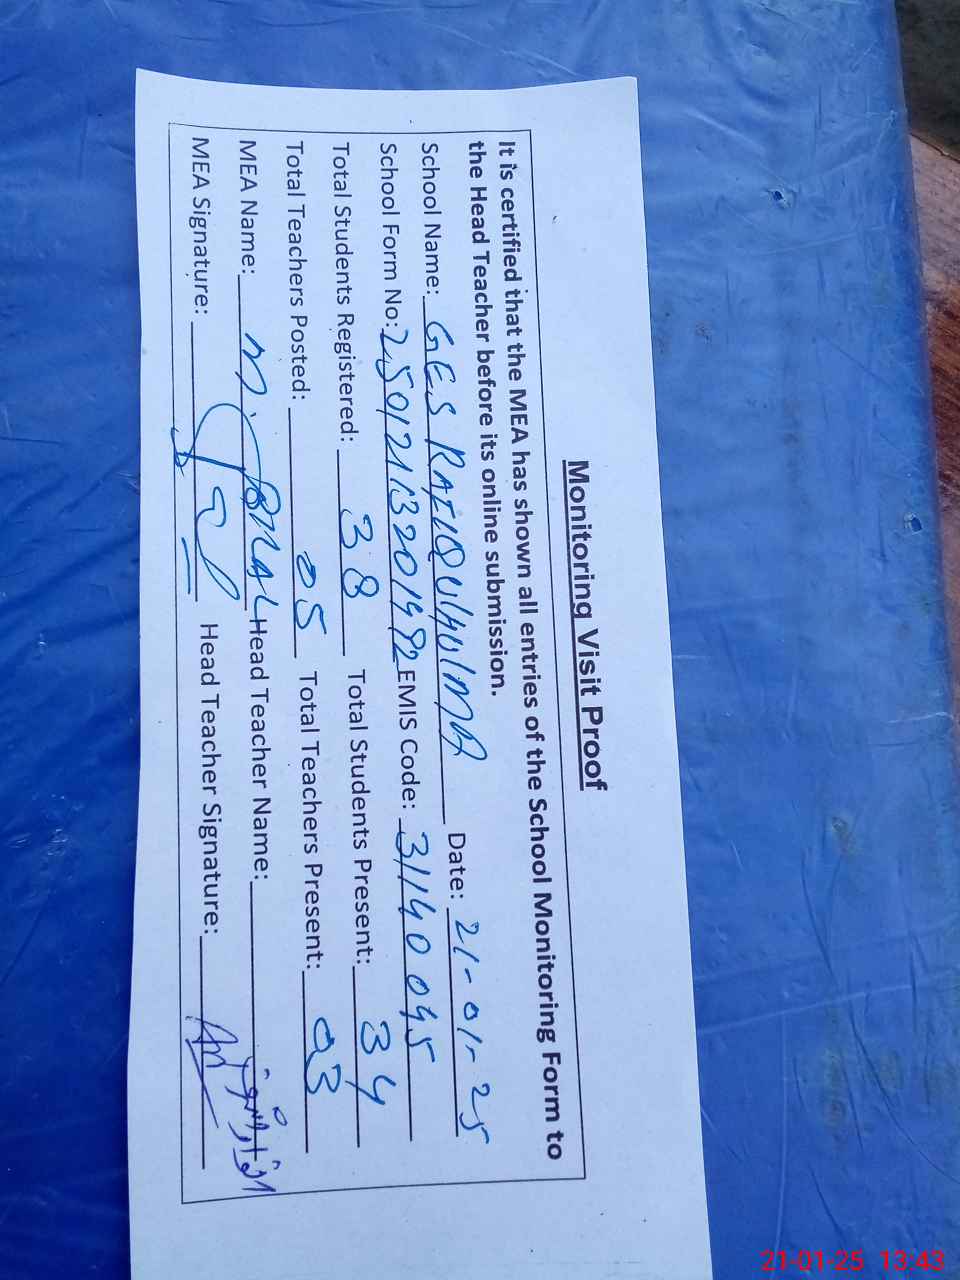 Monitoring Visit Proof
It is certified that the MEA has shown all entries of the School Monitoring Form to
the Head Teacher before its online submission.
School Name: GES Date: 21-01-25
School Form No: 250121132019 92 EMIS Code: 31140045
Total Students Registered: 38 Total Students Present: 34
Total Teachers Posted: 05 Total Teachers Present: 03
MEA Name: Head Teacher Name:
MEA Signature: Head Teacher Signature:
21-01-25 13:43